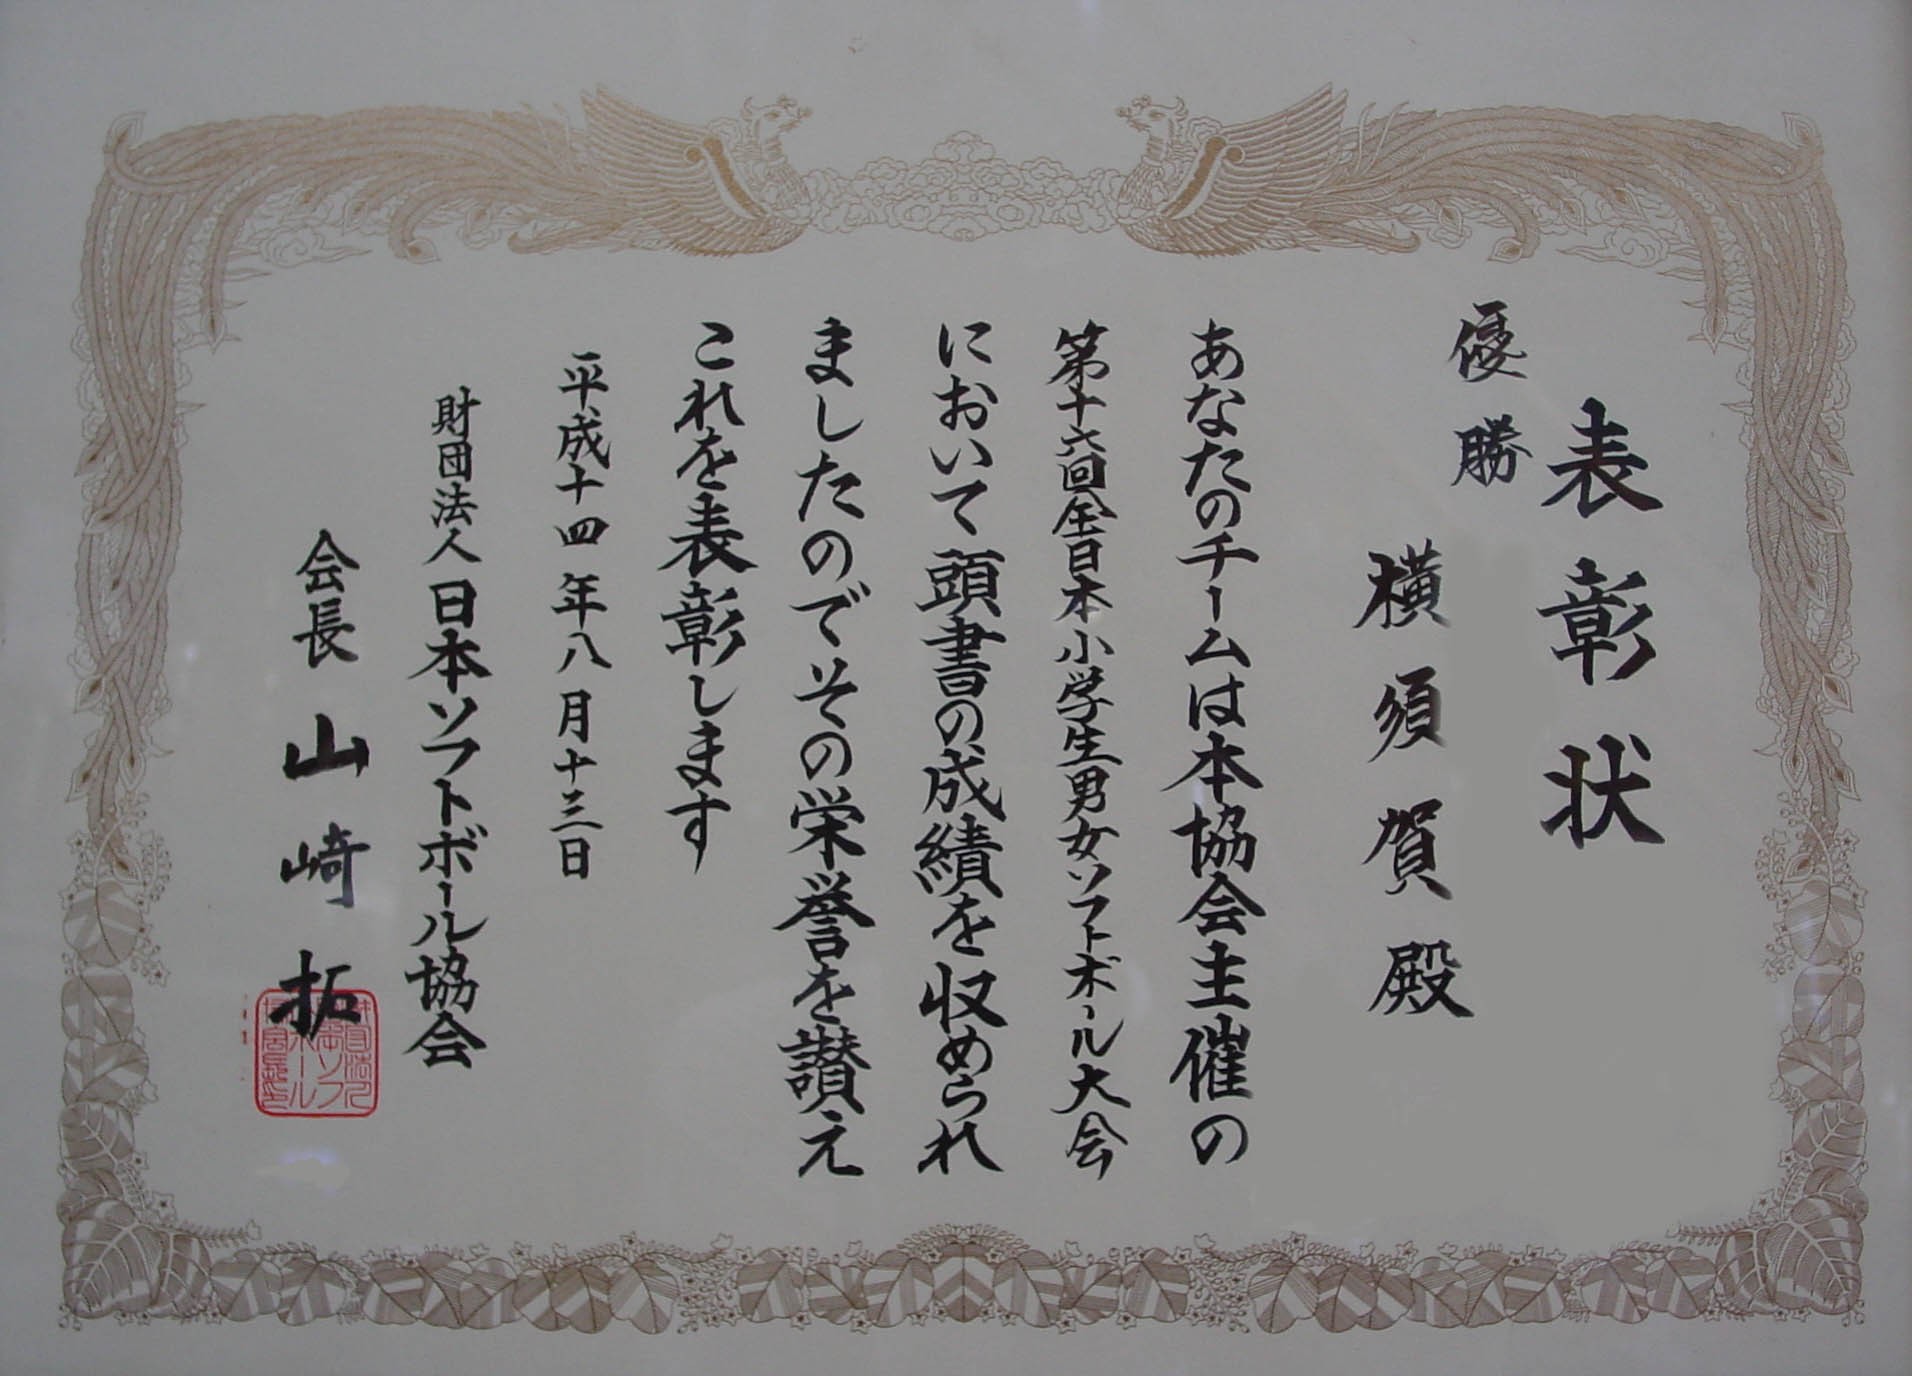 表彰状
優勝
横須賀殿
あなたのチームは本協会主催の
第十六回全日本小学生男女ソフトボール大会
において頭書の成績を収められ
ましたのでその栄誉を讃え
これを表彰します
平成十四年八月十三日
財団法人日本ソフトボール協会
会長 山崎拓